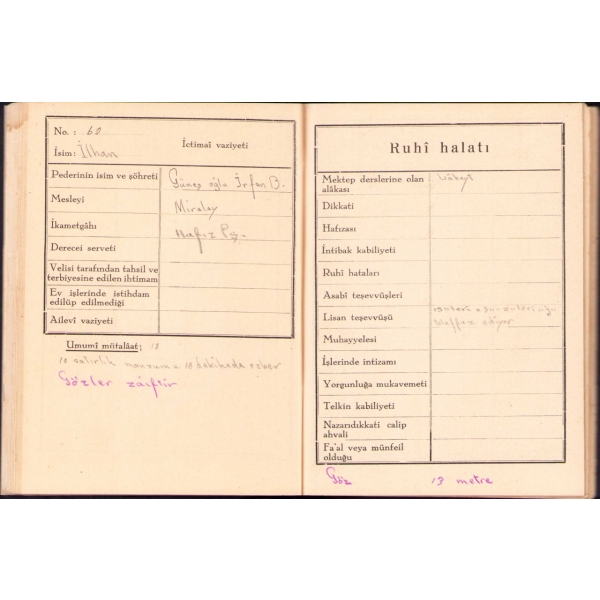 No. : 60
İsim: İlhan
İctimaî vaziyeti
Pederinin isim ve şöhreti
Güneş oğlu İrfan B.
Mesleyi
Miralay
İkametgâhı
Hafız Pş.
Derecei serveti
Velisi tarafından tahsil ve
terbiyesine edilen ihtimam
Ev işlerinde istihdam
edilüp edilmediği
Ailevî vaziyeti
Umumî mütalâat;
10 satırlık manzume 10 dakikada ezber
Gözler zaiftir
Ruhî halatı
Mektep derslerine olan
alâkası
Lâkayt
Dikkati
Hafızası
İntibak kabiliyeti
Ruhî hataları
Asabî teşevvüşleri
Lisan teşevvüşü
telaffuz ediyor
Muhayyelesi
İşlerinde intizamı
Yorgunluğa mukavemeti
Telkin kabiliyeti
Nazarıdıkkati calip
ahvali
Fa'al veya münfeil
olduğu
Göz 13 metre